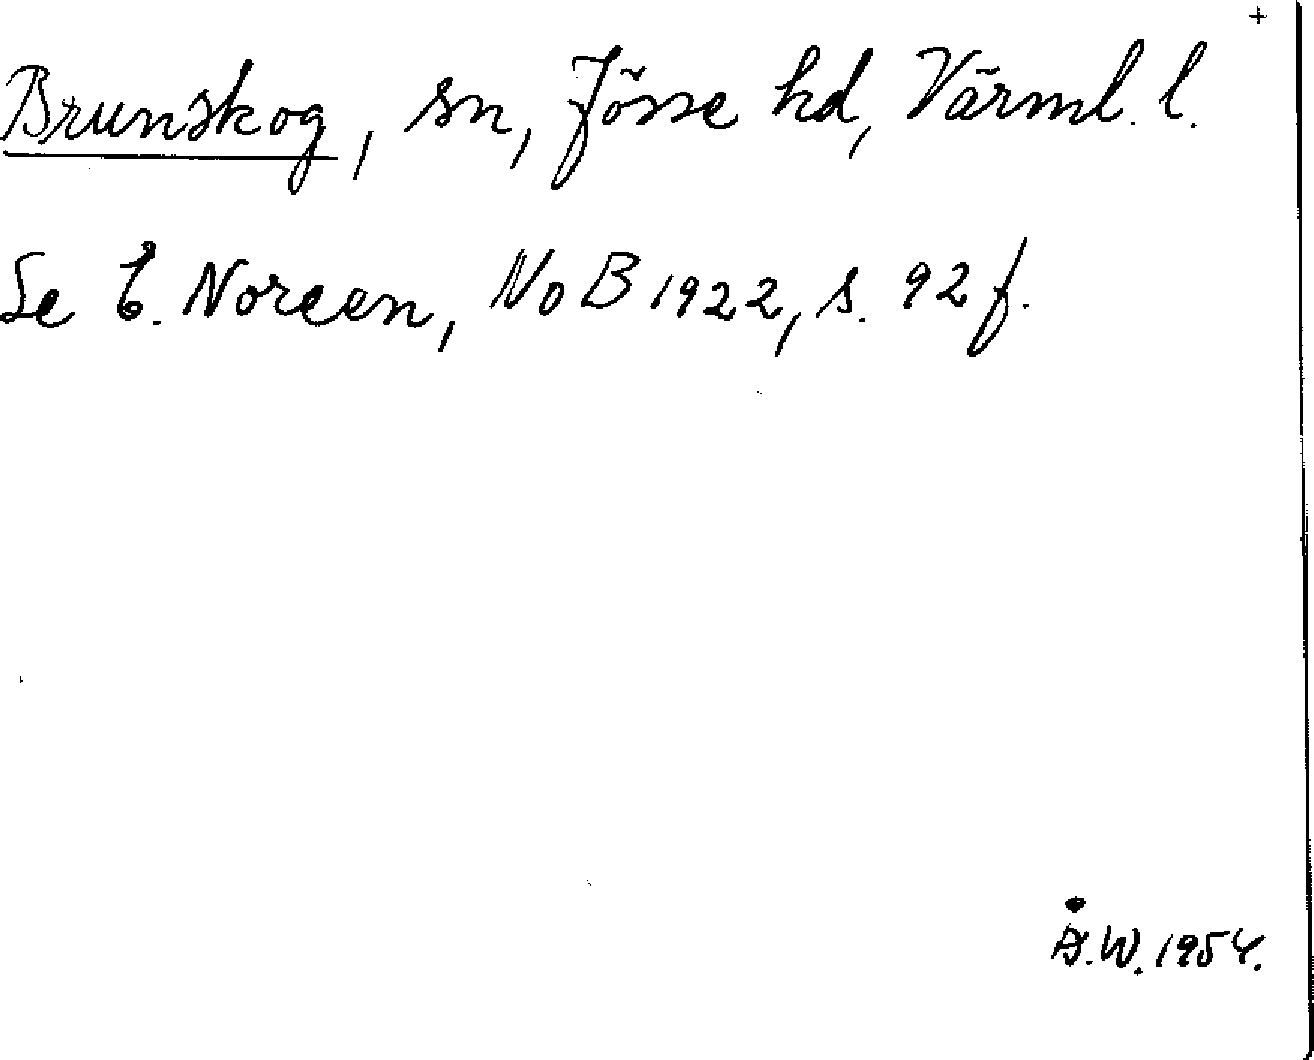 +
Brunskog, sn, Jösse hd, Värml. l.
Se E. Noreen, NoB 1922, s. 92 f.
Å.W. 1954.